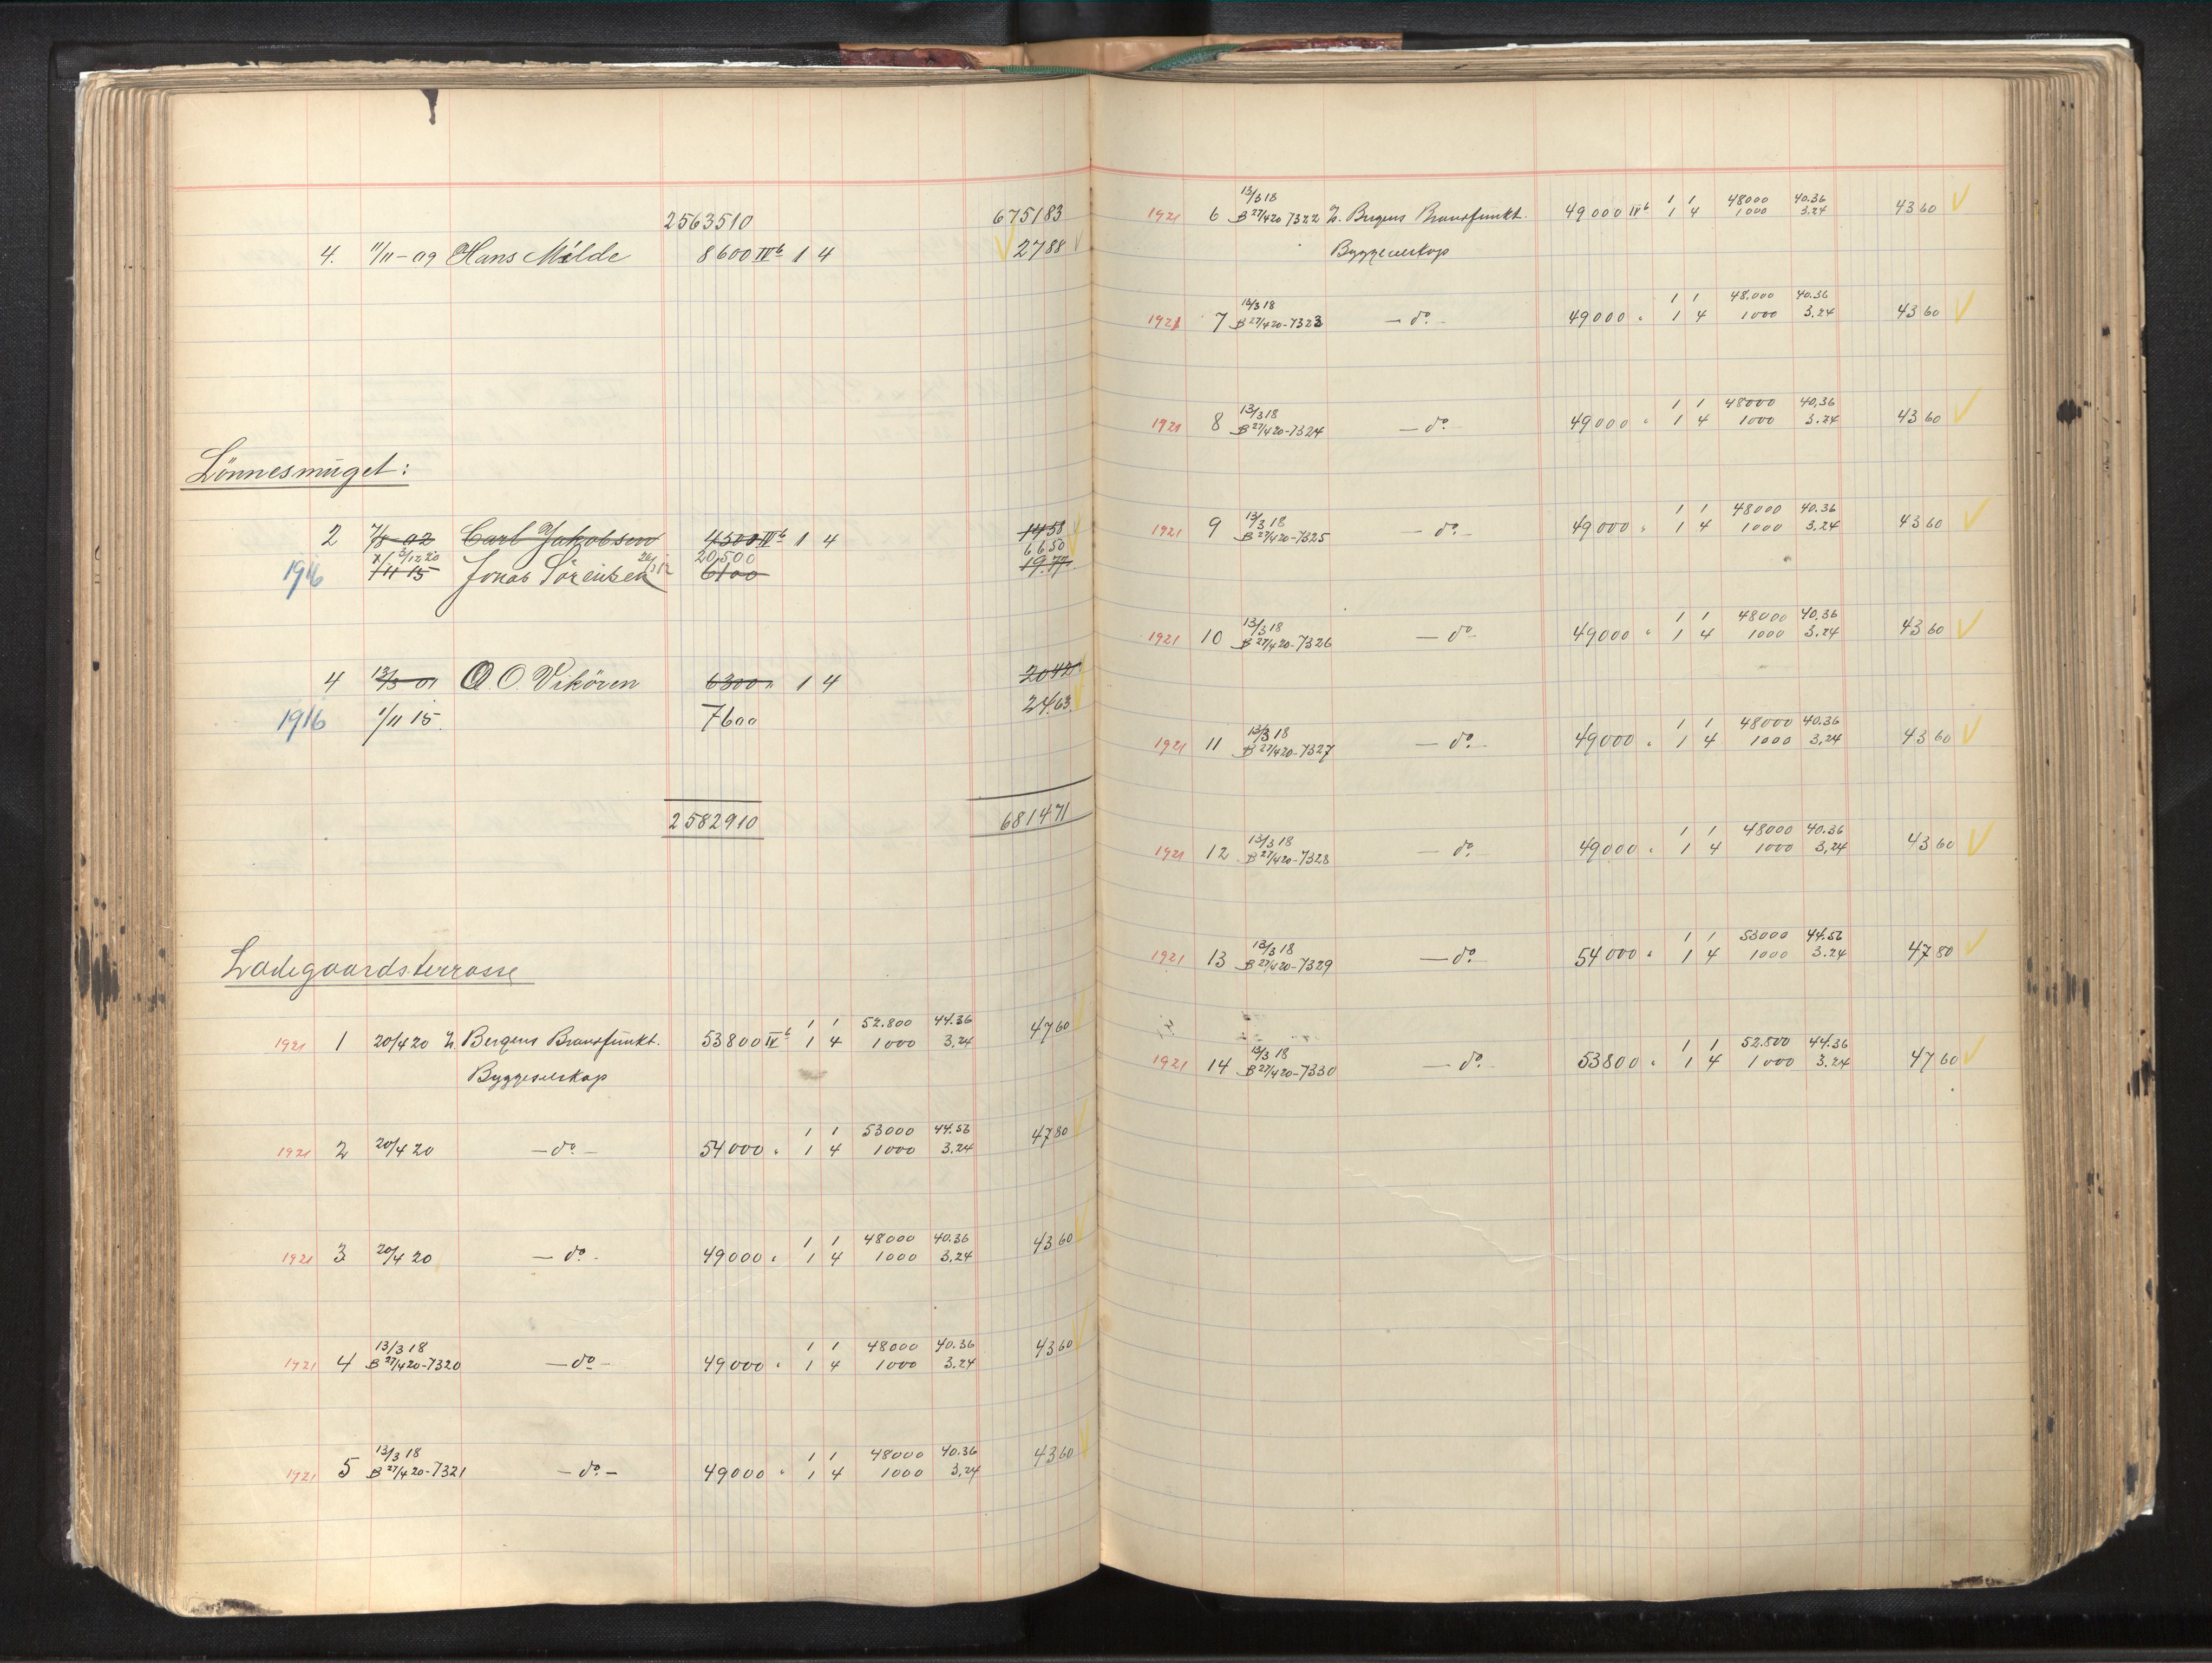 2563510 675183
4. 11/11-09 Hans Milde 8600 IVb 1 4 2788
Lönnesmuget:
2 7/8 02 Carl Jakobsen 4500 IVb 1 4 1458
3/12 20 20,500 6650
1916 1/11 15 Jonas Sörensen 6100 19.77
4 12/3 01 O. O. Vikören 6300 " 1 4 2042
1916 1/11 15 7600 24.63
2582910 681471
Ladegaardsterrasse
1 1 52.800 44.36
1921 1 20/4 20 Bergens Brandfunkt. 53800 IVb 1 4 1000 3,24 4760
Byggeselskap
1 1 53000 44.56
1921 2 20/4 20 — do — 54000 " 1 4 1000 3.24 4780
1 1 48000 40.36
1921 3 20/4 20 — do - 49000 " 1 4 1000 3,24 4360
13/3 18 1 1 48000 40.36
1921 4 B 27/4 20-7320 — do — 49000 " 1 4 1000 3.24 4360
13/3 18 1 1 48000 40.36
1921 5 B 27/4 20-7321 — do. — 49000 " 1 4 1000 3,24 4360
13/3 18 1 1 48000 40.36
1921 6 B 27/4 20 7322 Bergens Brandfunkt. 49000 IVb 1 4 1000 3.24 4360
Byggeselskap
13/3 18 1 1 48.000 40.36
1921 7 B 27/4 20-7323 — do. - 49000 " 1 4 1000 3.24 4360
13/3 18 1 1 48000 40,36
1921 8 B 27/4 20-7324 — do. 49000 " 1 4 1000 3.24 4360
13/3 18 1 1 48000 40.36
1921 9 B 27/4 20-7325 — do. - 49000 " 1 4 1000 3.24 4360
13/3 18 1 1 48000 40,36
1921 10 B 27/4 20-7326 — do - 49000 " 1 4 1000 3.24 4360
13/3 18 1 1 48000 40.36
1921 11 B 27/4 20-7327 — do. - 49000 " 1 4 1000 3,24 4360
13/3 18 1 1 48000 40.36
1921 12 B 27/4 20-7328 — do. - 49000 " 1 4 1000 3,24 4360
13/3 18 1 1 53000 44.56
1921 13 B 27/4 20-7329 — do. 54000 " 1 4 1000 3.24 4780
13/3 18 1 1 52.800 44.36
1921 14 B 27/4 20-7330 — do. - 53800 " 1 4 1000 3.24 4760